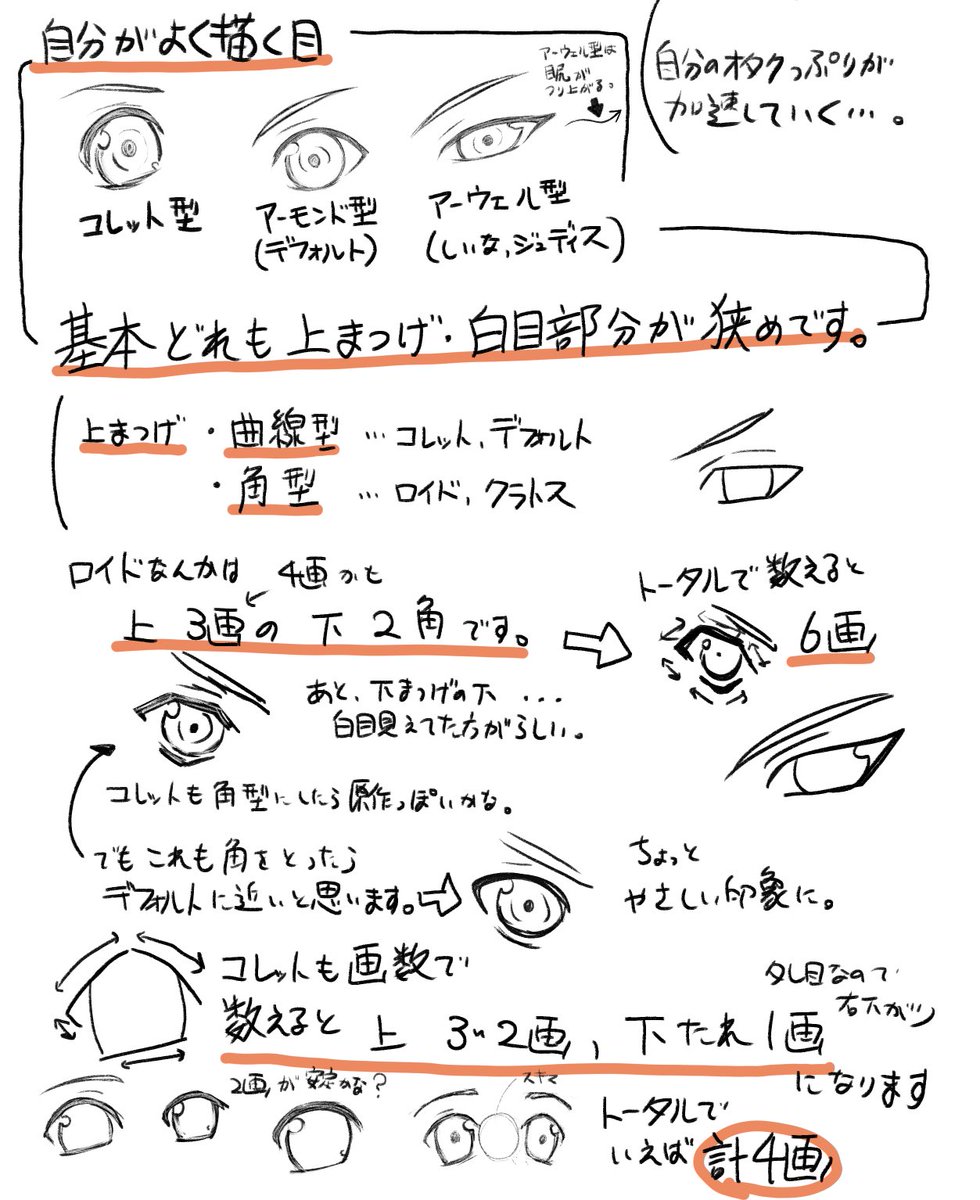 自分がよく描く目
アーウェル型は
目尻が
つり上がる。
自分のオタクっぷりが
加速していく…。
コレット型
アーモンド型
(デフォルト)
アーウェル型
(しいな,ジュディス)
基本どれも上まつげ・白目部分が狭めです。
上まつげ・曲線型…コレット,デフォルト
・角型…ロイド,クラトス
ロイドなんかは 4画かも
上3画の下2角です。
トータルで数えると
6画
あと、下まつげの下...
白目見えてた方がらしい。
コレットも角型にしたら原作っぽいかな。
でもこれも角をとったら
デフォルトに近いと思います。
ちょっと
やさしい印象に。
コレットも画数で
数えると上3〜2画,下たれ1画
タレ目なので
右下がり
になります
2画が安定かな?
スキマ
トータルで
いえば計4画